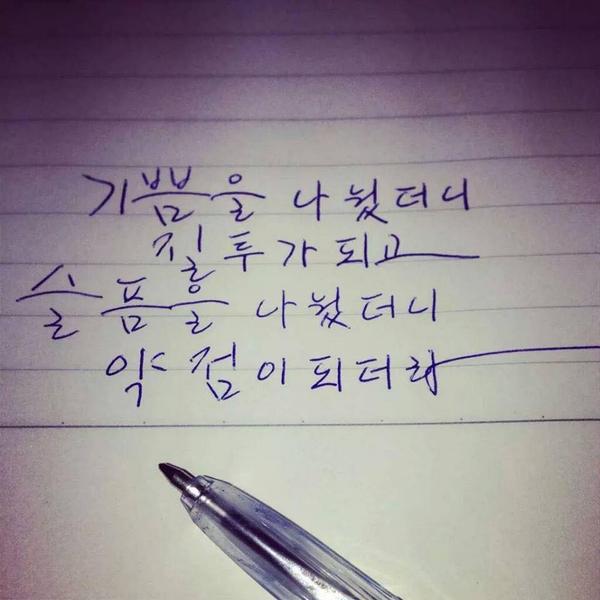 기쁨을 나눴더니
질투가 되고
슬픔을 나눴더니
약점이 되더라